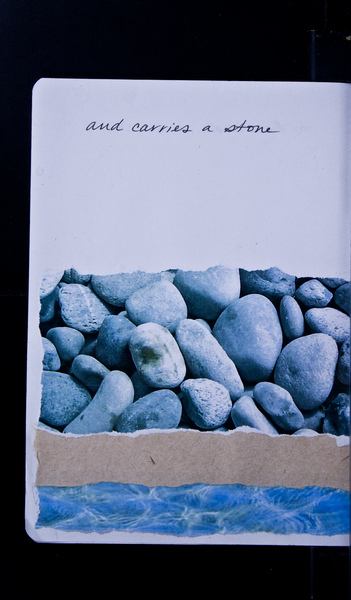 and carries a stone